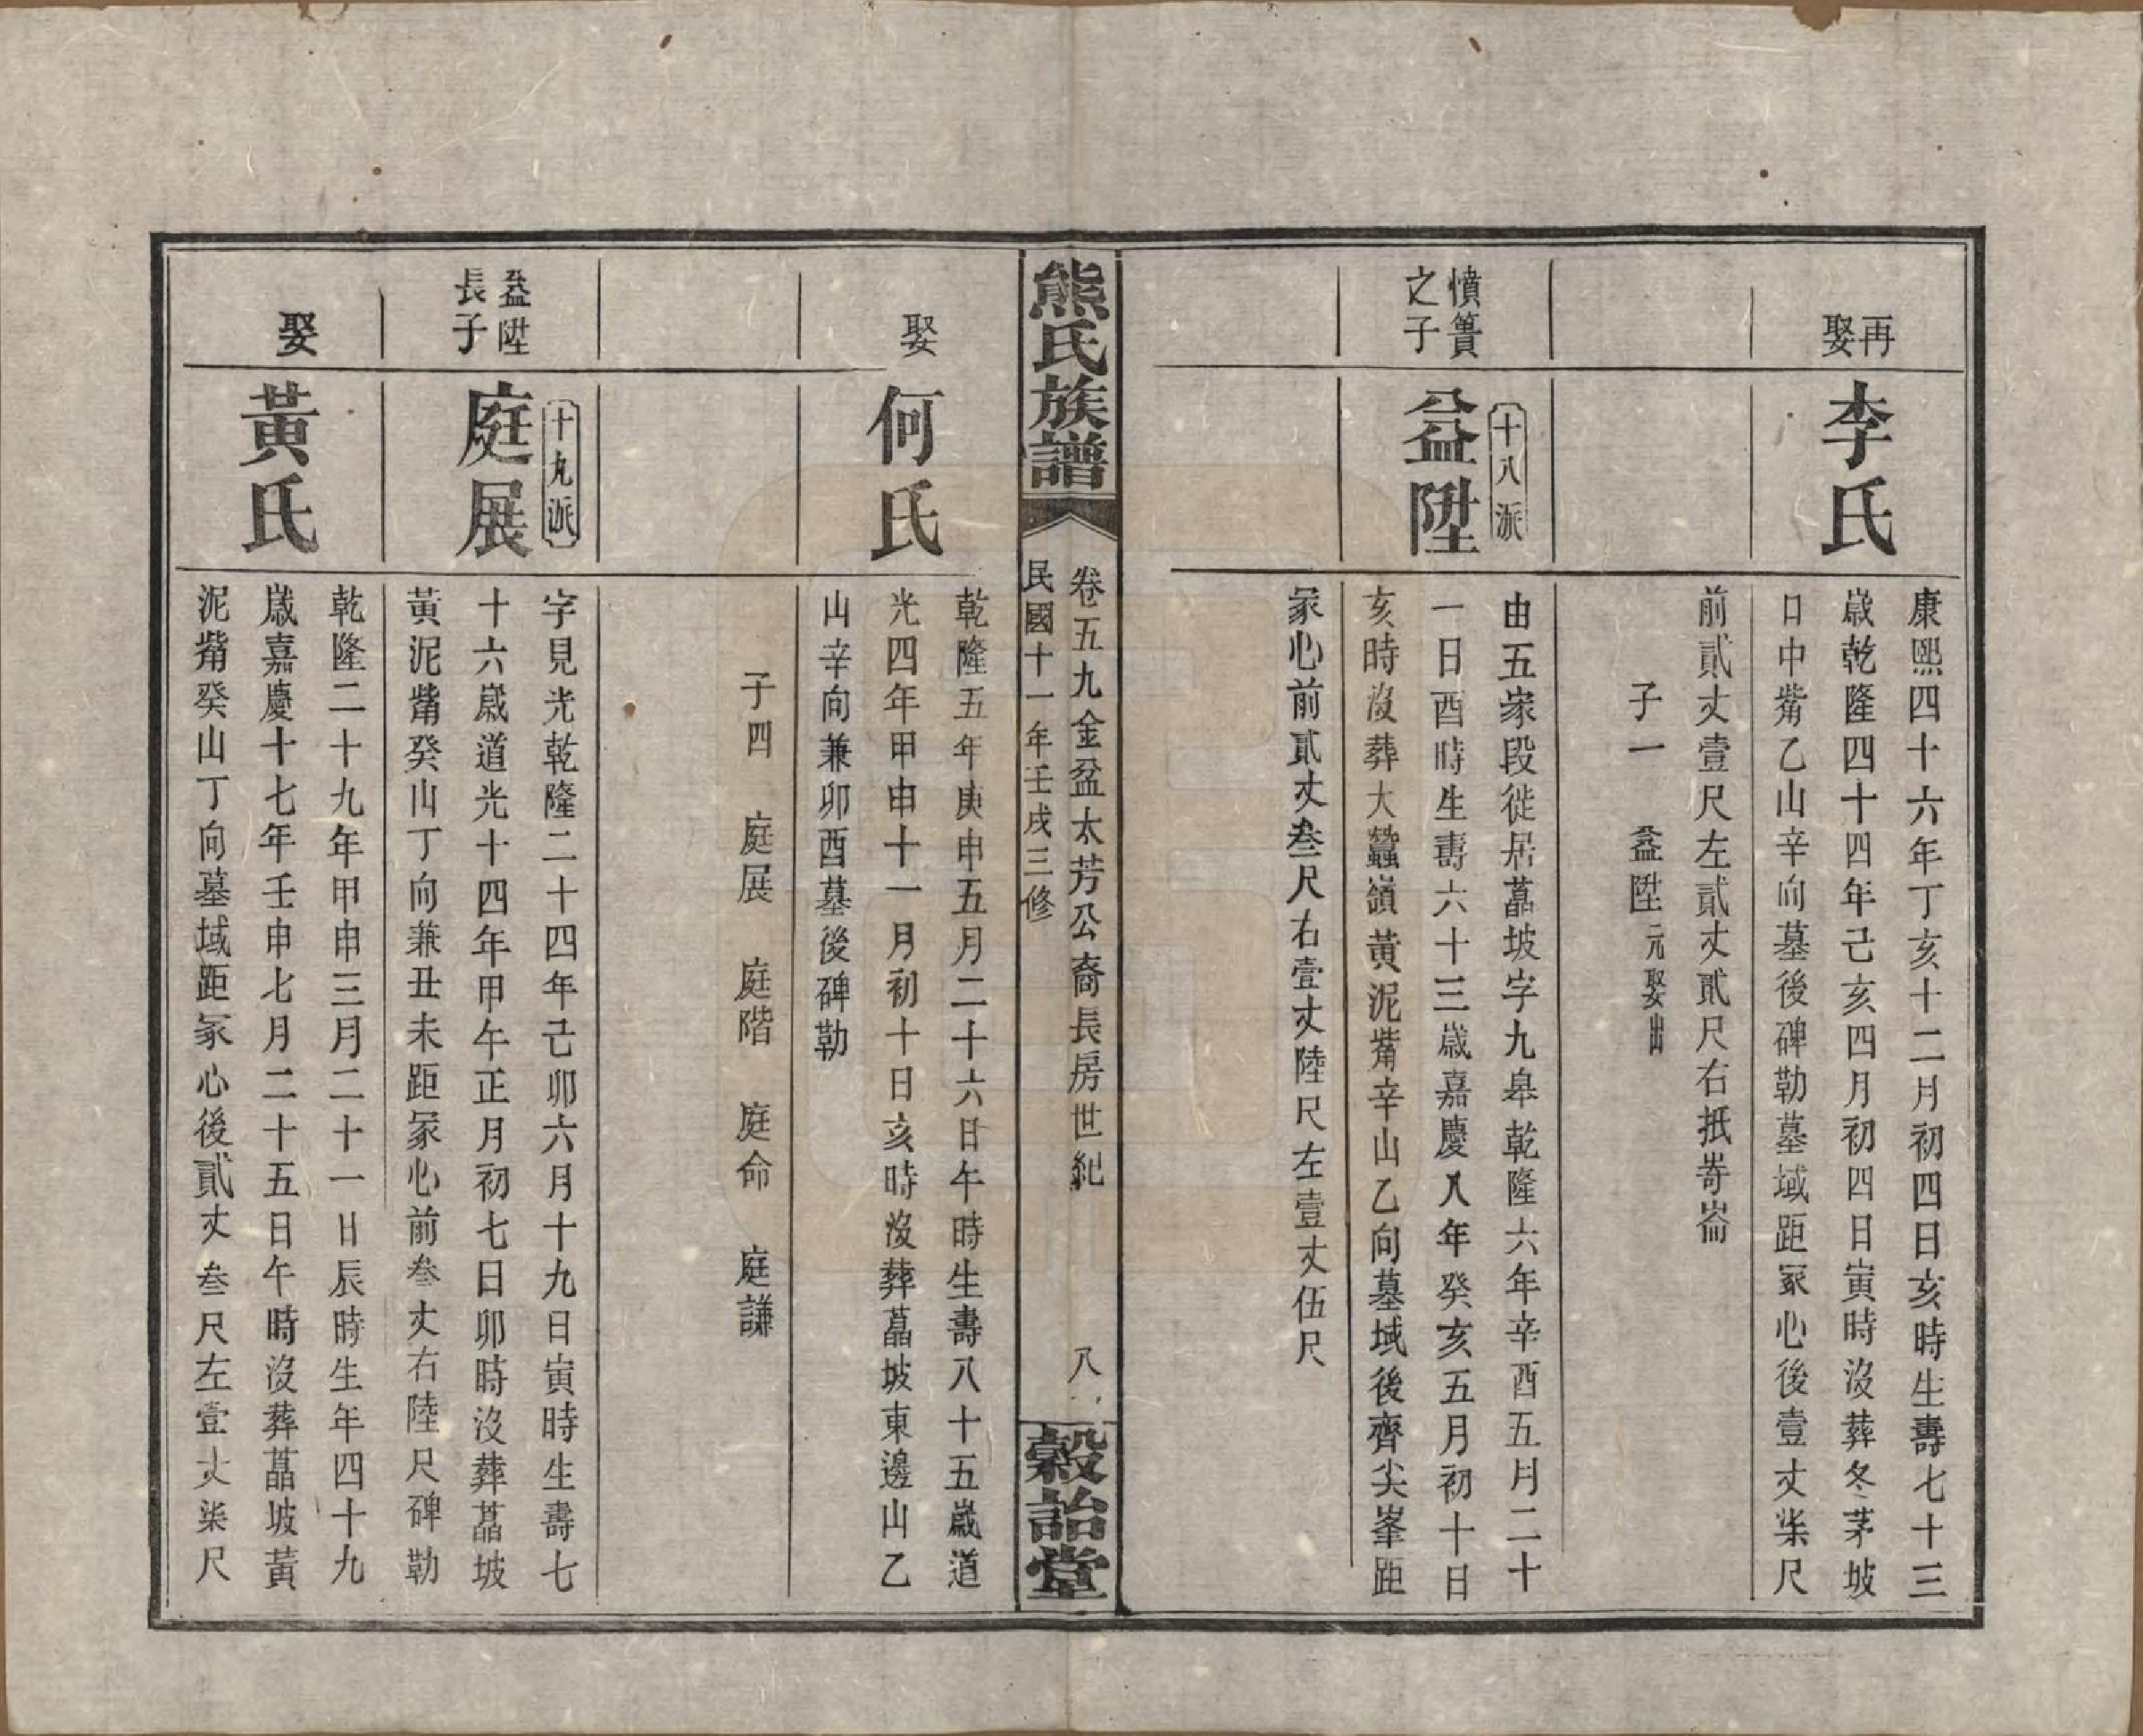 再娶
李氏
康熙四十六年丁亥十二月初四日亥時生壽七十三
歲乾隆四十四年己亥四月初四日寅時沒葬冬茅坡
口中觜乙山辛向墓後碑勒墓域距冢心後壹丈柒尺
前貳丈壹尺左貳丈貳尺右抵嵜崙
子一　益陞元娶出
憤簣
之子
十八派
益陞
由五家段徙居藠坡字九皋乾隆六年辛酉五月二十
一日酉時生壽六十三歲嘉慶八年癸亥五月初十日
亥時沒葬大蠶嶺黃泥觜辛山乙向墓域後齊尖峯距
冢心前貳丈叁尺右壹丈陸尺左壹丈伍尺
熊氏族譜
卷五九金盆太芳公裔長房世紀
八
民國十一年壬戌三修
穀詒堂
娶
何氏
乾隆五年庚申五月二十六日午時生壽八十五歲道
光四年甲申十一月初十日亥時沒葬藠坡東邊山乙
山辛向兼卯酉墓後碑勒
子四　庭展　庭階　庭命　庭謙
益陞
長子
十九派
庭展
字見光乾隆二十四年己卯六月十九日寅時生壽七
十六歲道光十四年甲午正月初七日卯時沒葬藠坡
黃泥觜癸山丁向兼丑未距冢心前叁丈右陸尺碑勒
娶
黃氏
乾隆二十九年甲申三月二十一日辰時生年四十九
歲嘉慶十七年壬申七月二十五日午時沒葬藠坡黃
泥觜癸山丁向墓域距冢心後貳丈叁尺左壹丈柒尺